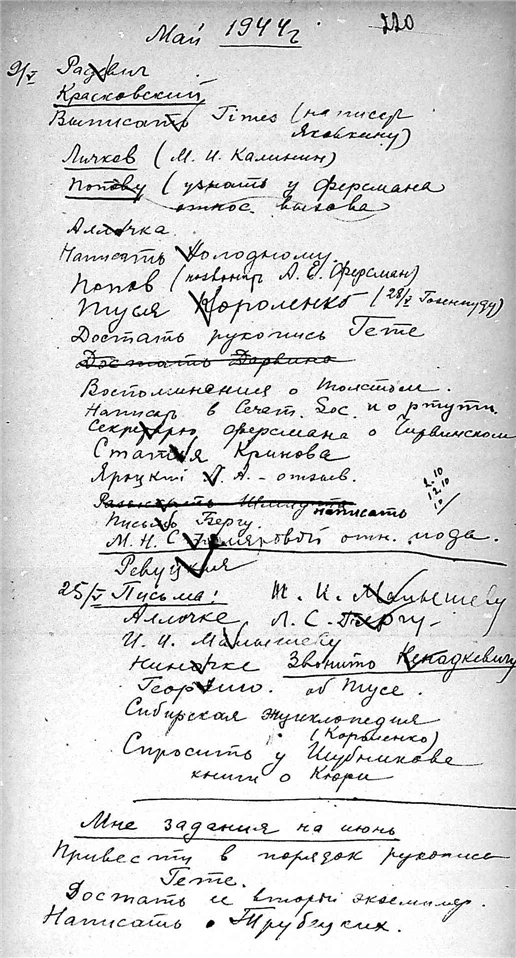 Май 1944г 220
9/V Радевич
Красковский
Выписать Times (написал
Яковкину)
Личков (М. И. Калинин)
Попову (узнать у Ферсмана
относ. вызова
Аллочка
Написать Холодному
Попов (позвонит А. Е. Ферсман)
Туся Короленко (28/V
Достать рукопись Гете
Достать Дарвина
Воспоминания о Толстом.
Написал в Geochem. Soc. и о ртути
Секретарю Ферсмана о Чирвинском
Статья Кринова
Яроцкий Г. А. – отзыв.
2.10
12.10
10/
Письмо Бергу. написать
М. Н. С отн. иода.
Ревуцкия
25/V Письма: Т. И. Малышеву
Аллочке Л. С. Бергу –
И. И. Малышеву
Ниночке Звонить Ненадкевичу
Георгию. об Тусе.
Сибирская энциклопедия
(Короленко)
Спросить у Шубникова
книги о Кюри
Мне задания на июнь
Привести в порядок рукопись
Гете.
Достать и второй экземпляр.
Написать о Трубецких.